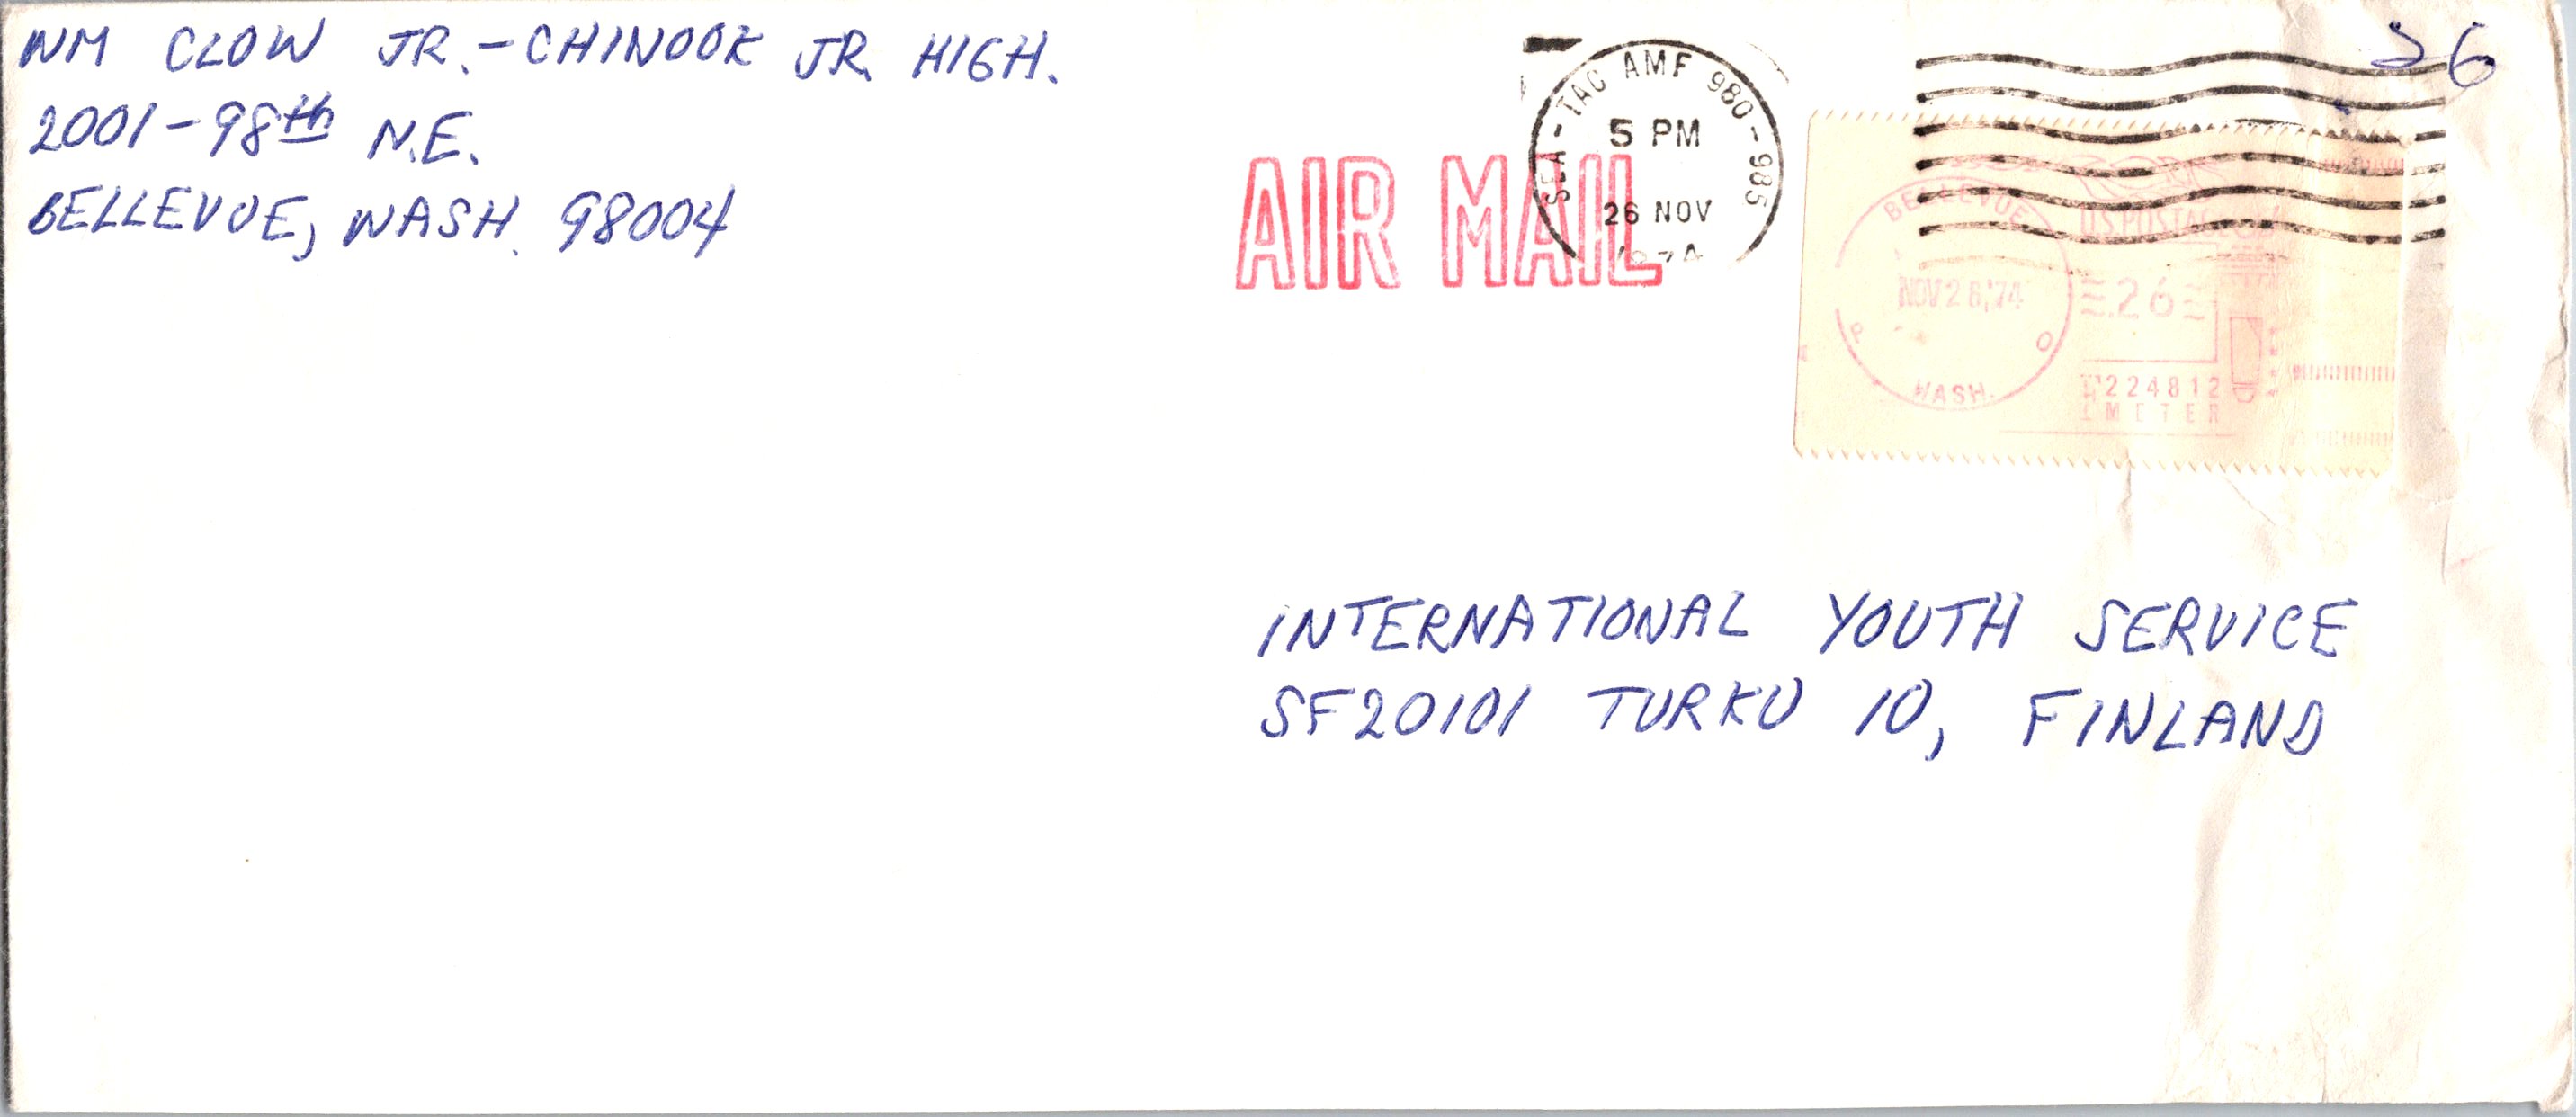 WM CLOW JR. - CHINOOK JR. HIGH.
2001-98th N.E.
BELLEVUE, WASH. 98004
26
AIR MAIL
SEA-TAC AMF 980-985
5 PM
26 NOV
1974
BELLEVUE
NOV 26 '74
P O
WASH.
U.S. POSTAGE
26
224812
METER
INTERNATIONAL YOUTH SERVICE
SF20101 TURKU 10, FINLAND